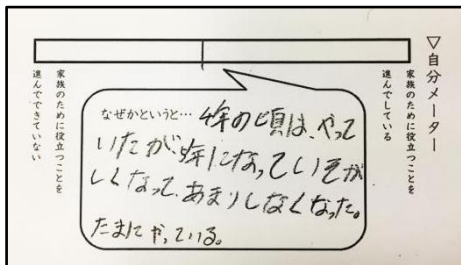 ▽自分メーター
家族のために役立つことを
進んでしている
家族のために役立つことを
進んでできていない
なぜかというと…4年の頃は、やって
いたが、5年になっていそが
しくなって、あまりしなくなった。
たまにやっている。